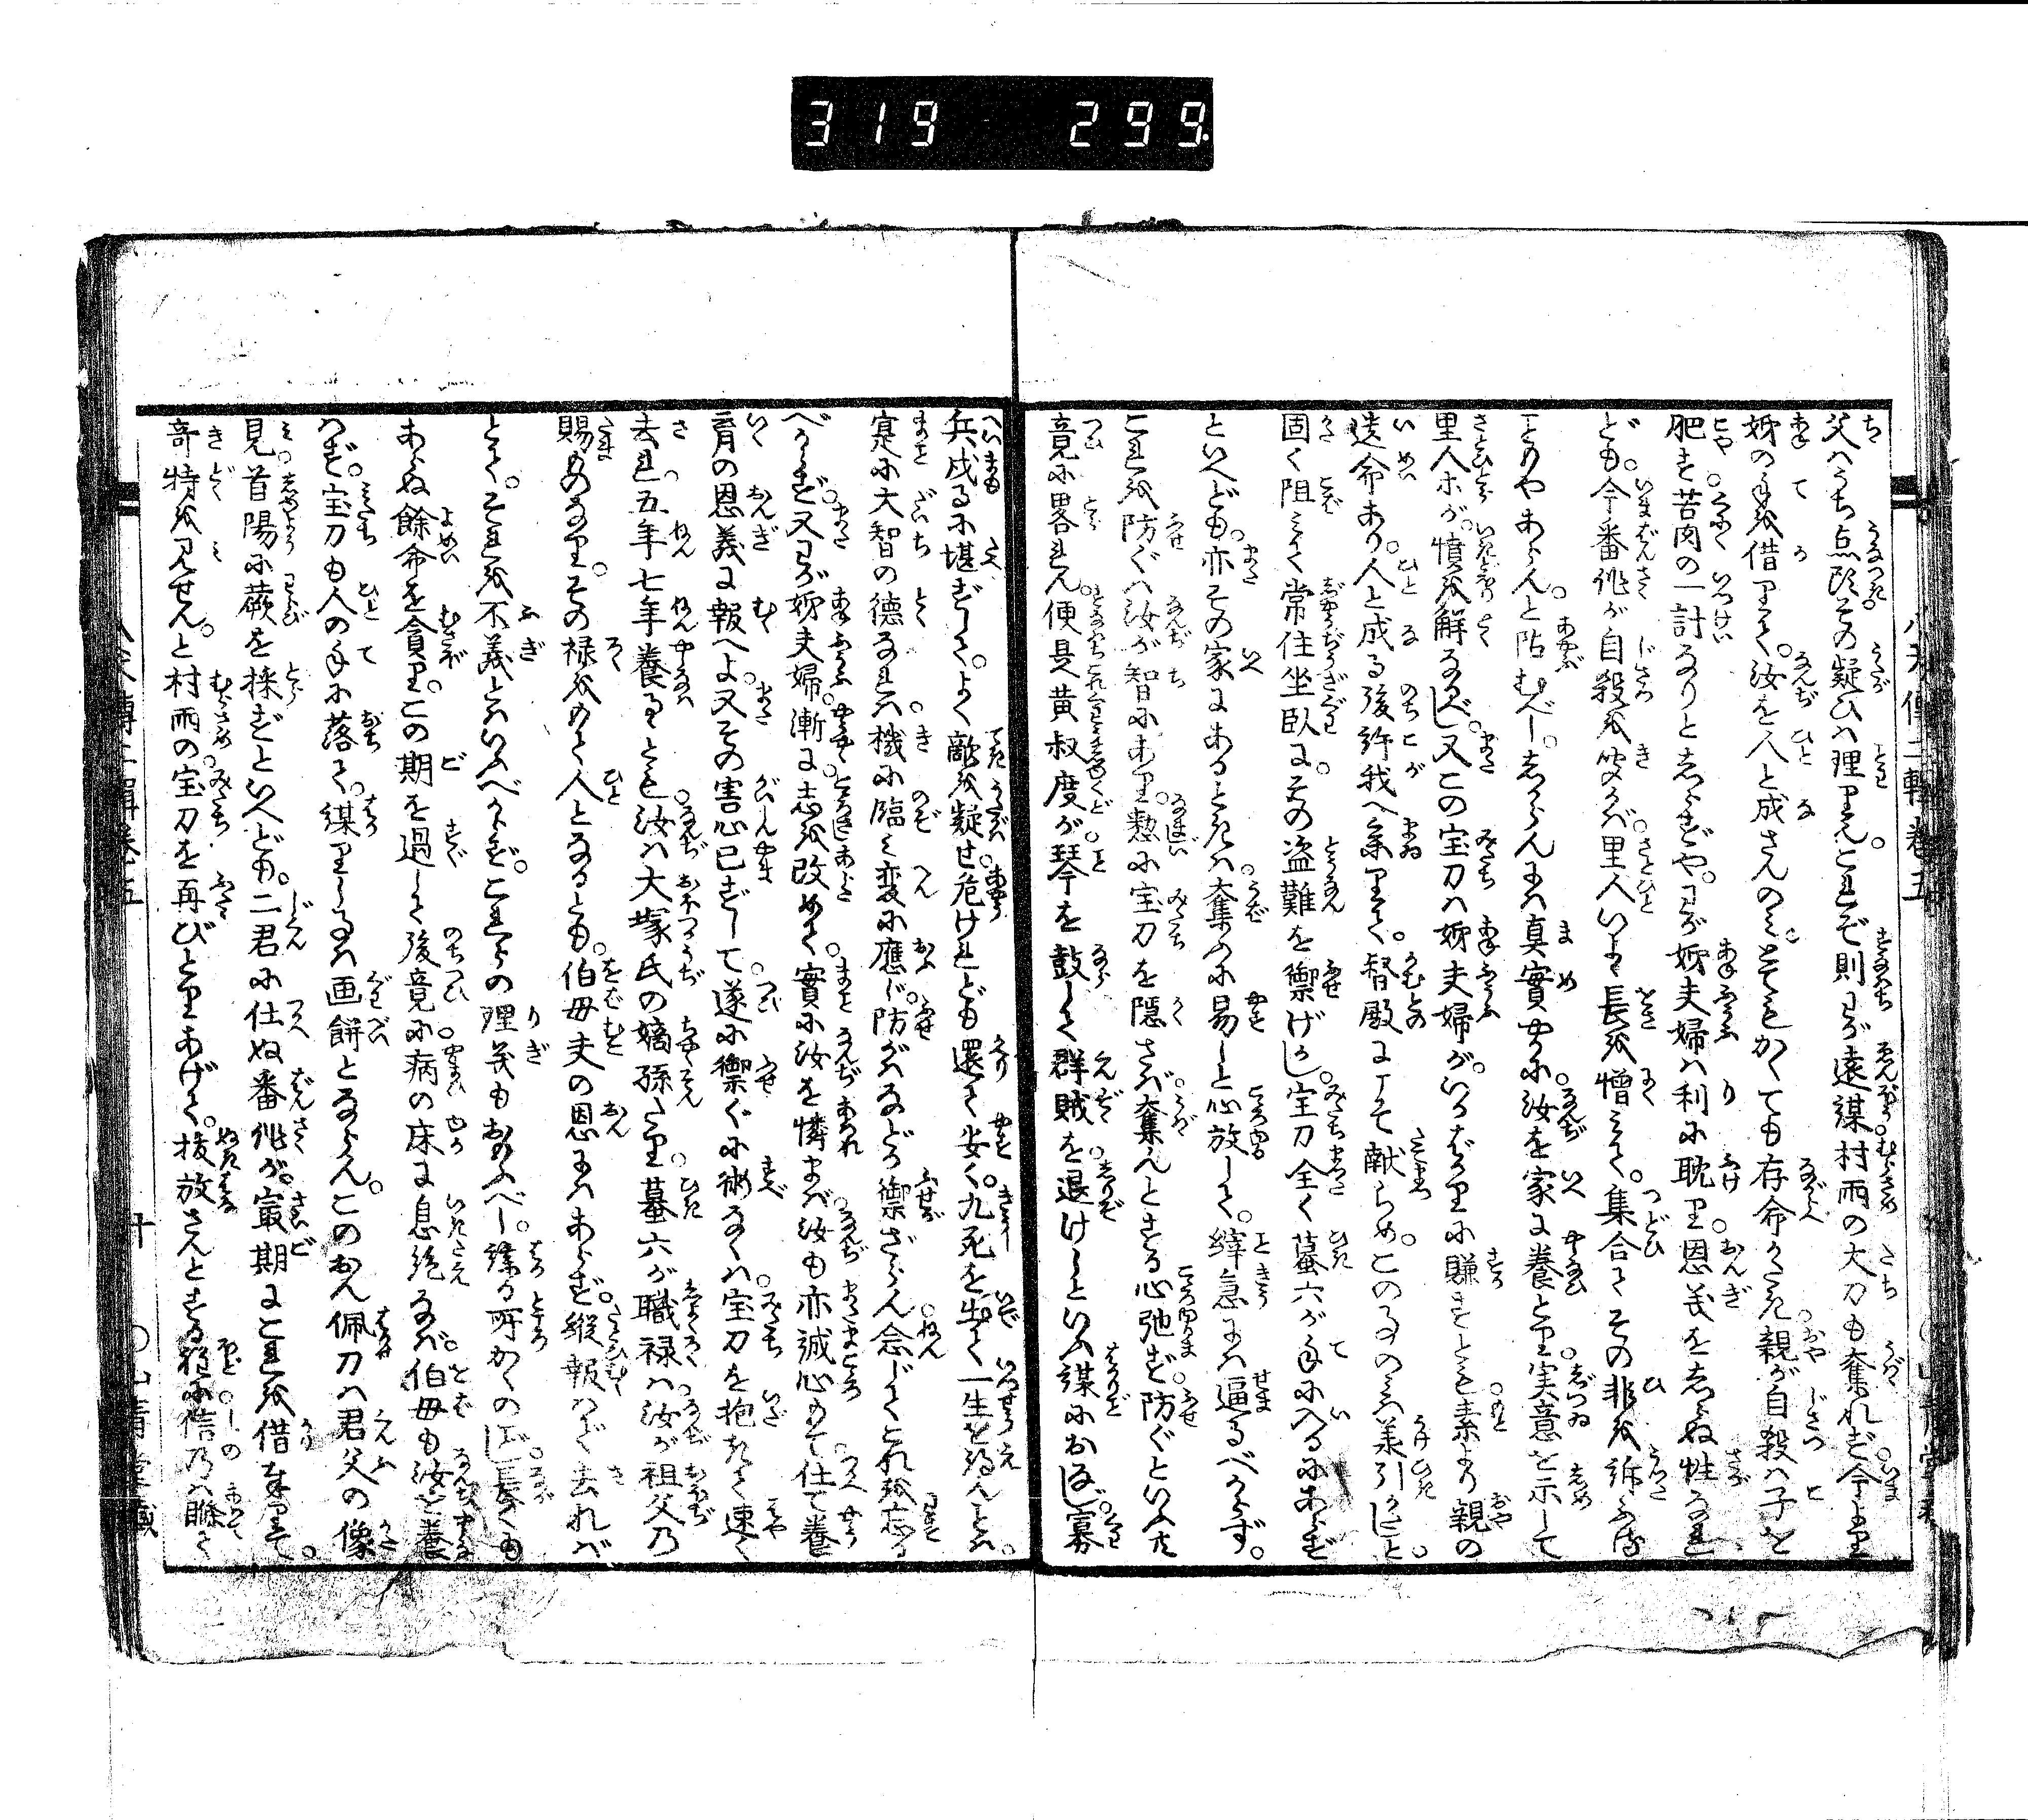 319 299
父ハうち点頭。その疑ひハ理りそ。これぞ則わが遠謀村雨の大刀も奪れず。今より
姉の手を借りて。汝を人と成さんのみ。さてもかくても存命がたき。親が自殺ハ子を
肥す。苦肉の一計なりとしらずや。わが姉夫婦ハ利に耽り。恩義をしらぬ性なれ
ども。今番作が自殺を聞かバ。里人いよゝ長を憎みて。集合てその非を訴ふる
ことのやあらん。と阽むべし。しからんにハ真實やかに。汝を家に養とり。実意を示して
里人ホが。憤を解なるべし。又この宝刀ハ姉夫婦が。いかばかりに賺すとも。素より親の
遺命あり。人と成る後許我へ参りて。督殿によて献らめ。このことのみハ承引がたしと。
固く阻みて常住坐臥に。その盗難を禦げかし。宝刀全く蟇六が手に入るにあらず
といへども。亦その家にあるときハ。奪ふに易しと心放して。繹急にハ逼るべからず。
これを防ぐハ汝が智にあり。憖に宝刀を隠さバ。奪んとする心弛ず。防ぐといふ共
竟に畧れん。便是黄叔度が琴を鼓して群賊を退けしといふ謀におなじ。寡
兵戍るに堪ずして。よく敵を疑せ。危けれども還て安く。九死を出て一生を得んとハ。
寔に大智の徳なれハ。機に臨ミ変に應じ。防がバなどか禦ざらん。念じてこれを忘る
べからず。又わが姉夫婦。漸に志を改めて。實に汝を憐まバ。汝も亦誠心もて仕て養
育の恩義に報へよ。又その害心已ずして。遂に禦ぐに術なくハ。宝刀を抱きて速く
去れ。五年七年養るとも。汝ハ大塚氏の嫡孫たり。蟇六が職禄ハ汝が祖父の
賜ものなり。その禄をもて人となるとも。伯母夫の恩にハあらず。縦報ハで去れバ
とて。それを不義とハいふべからず。これらの理義もおもふべし。謀る所かくの如し。長くも
あらぬ餘命を貪り。この期を過して後竟に。病の床に息絶なバ。伯母も汝を養
ハず。宝刀も人の手に落て。謀りしことハ画餅とならん。このおん佩刀ハ君父の像
見。首陽に蕨を採ずといへども。二君に仕ぬ番作が。最期にこれを借奉りて。
奇特を見せん。と村雨の。宝刀を再びとりあげて。抜放さんとする程に。信乃ハ
八犬傳二輯巻五 十 ○山青堂藏